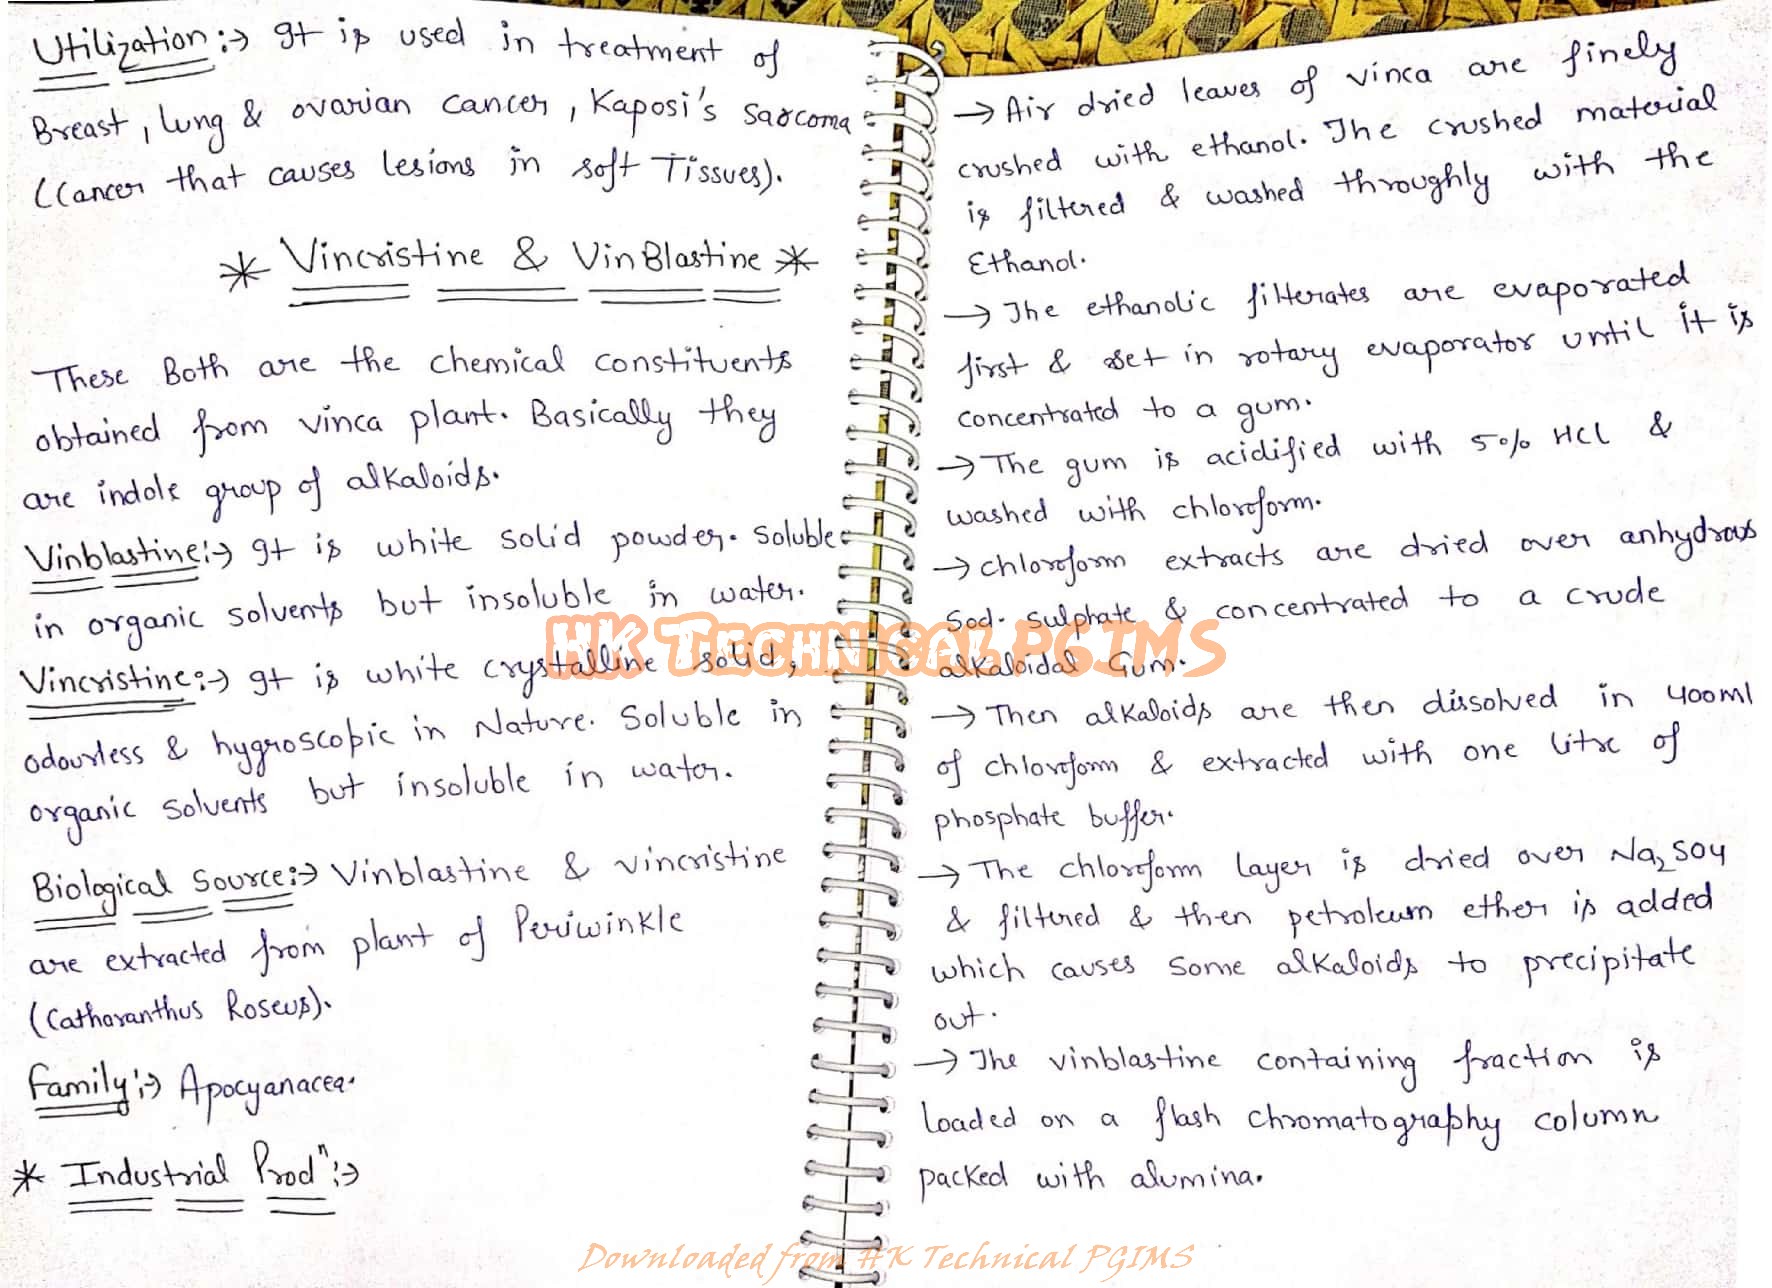 Utilization :→ It is used in treatment of
Breast, lung & ovarian cancer, Kaposi's Sarcoma
(Cancer that causes lesions in soft Tissues).
* Vincristine & VinBlastine *
These Both are the chemical constituents
obtained from vinca plant. Basically they
are indole group of alkaloids.
Vinblastine :→ It is white solid powder. Soluble
in organic solvents but insoluble in water.
Vincristine :→ It is white crystalline solid,
odourless & hygroscopic in Nature. Soluble in
organic solvents but insoluble in water.
Biological Source :→ Vinblastine & vincristine
are extracted from plant of Periwinkle
(Catharanthus Roseus).
Family :→ Apocyanacea.
* Industrial Prodⁿ :→
→ Air dried leaves of vinca are finely
crushed with ethanol. The crushed material
is filtered & washed throughly with the
Ethanol.
→ The ethanolic filterates are evaporated
first & set in rotary evaporator until it is
concentrated to a gum.
→ The gum is acidified with 5% HCl &
washed with chloroform.
→ chloroform extracts are dried over anhydrous
Sod. Sulphate & concentrated to a crude
alkaloidal Gum.
→ Then alkaloids are then dissolved in 400ml
of chloroform & extracted with one litre of
phosphate buffer.
→ The chloroform layer is dried over Na₂SO4
& filtered & then petroleum ether is added
which causes some alkaloids to precipitate
out.
→ The vinblastine containing fraction is
loaded on a flash chromatography column
packed with alumina.
HK Technical PGIMS
Downloaded from HK Technical PGIMS